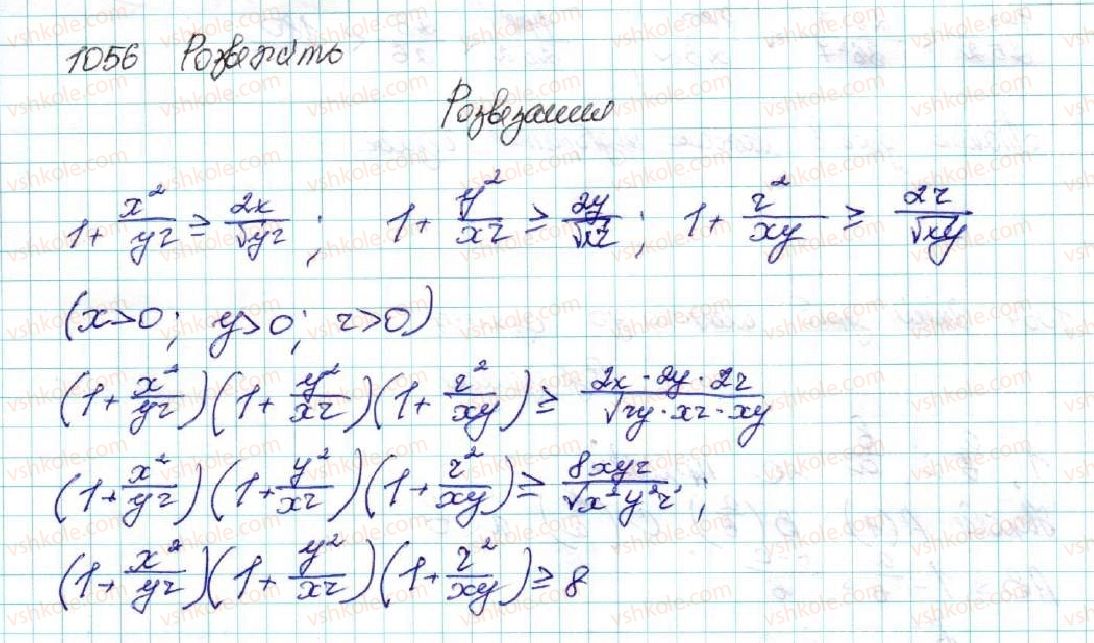 1056 Розвежить
Розвезання
1 + x²/yz ≥ 2x/√yz ; 1 + y²/xz ≥ 2y/√xz ; 1 + z²/xy ≥ 2z/√xy
(x>0; y>0; z>0)
(1 + x²/yz)(1 + y²/xz)(1 + z²/xy) ≥ 2x · 2y · 2z/√zy · xz · xy
(1 + x²/yz)(1 + y²/xz)(1 + z²/xy) ≥ 8xyz/√x²y²z² ;
(1 + x²/yz)(1 + y²/xz)(1 + z²/xy) ≥ 8